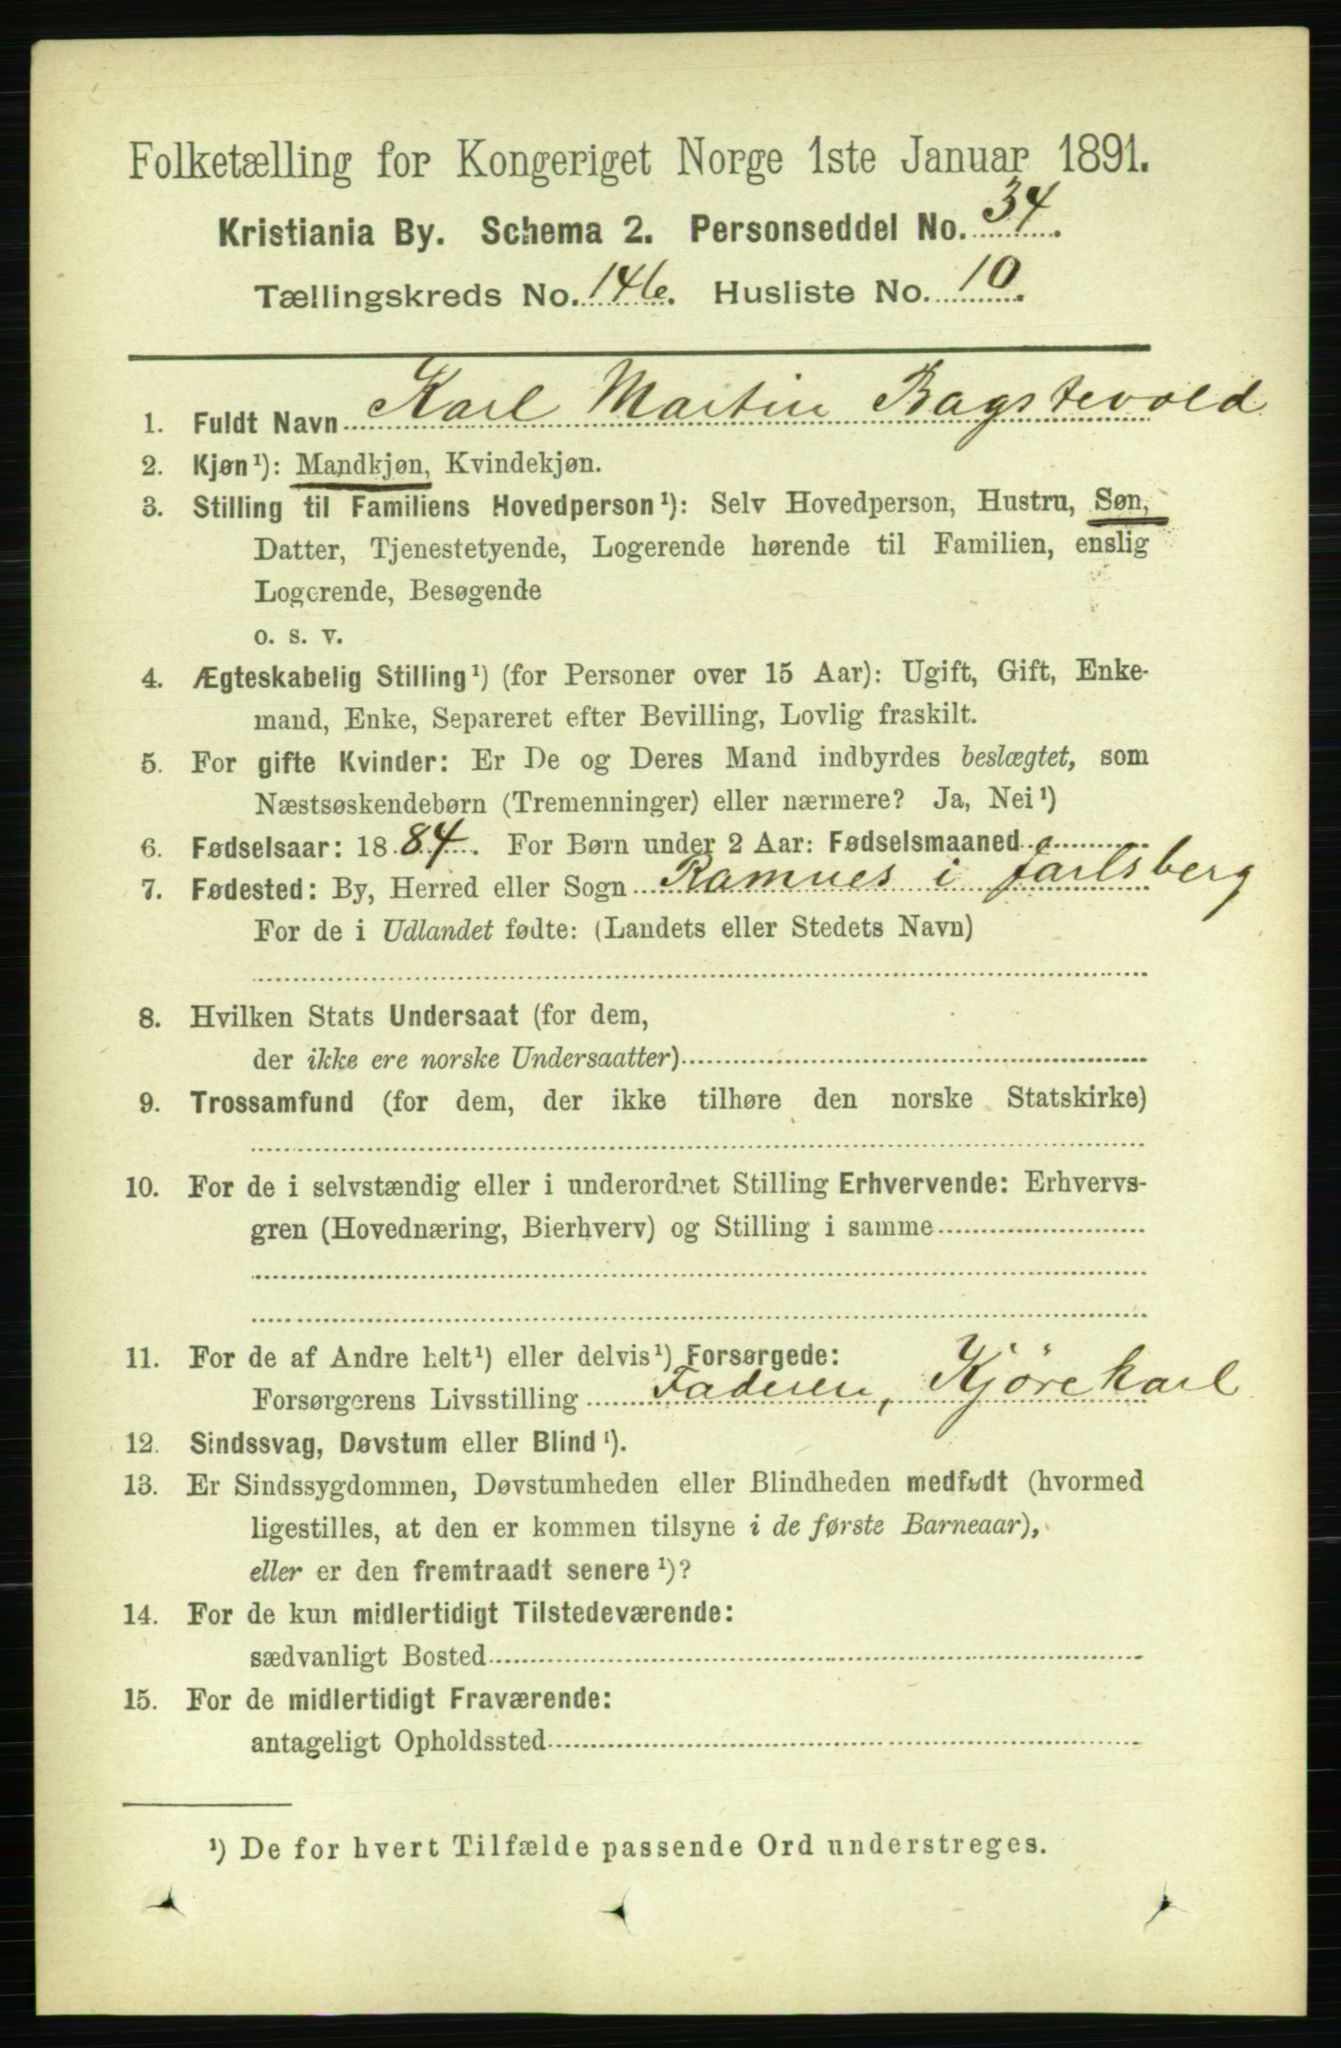 Folketælling for Kongeriget Norge 1ste Januar 1891.
Kristiania By. Schema 2. Personseddel No. 34.
Tællingskreds No. 146. Husliste No. 10.
1. Fuldt Navn Karl Martin Bagstevold
2. Kjøn¹): Mandkjøn, Kvindekjøn.
3. Stilling til Familiens Hovedperson¹): Selv Hovedperson, Hustru, Søn,
Datter, Tjenestetyende, Logerende hørende til Familien, enslig
Logerende, Besøgende
o. s. v.
4. Ægteskabelig Stilling¹) (for Personer over 15 Aar): Ugift, Gift, Enke-
mand, Enke, Separeret efter Bevilling, Lovlig fraskilt.
5. For gifte Kvinder: Er De og Deres Mand indbyrdes beslægtet, som
Næstsøskendebørn (Tremenninger) eller nærmere? Ja, Nei¹)
6. Fødselsaar: 1884. For Børn under 2 Aar: Fødselsmaaned
7. Fødested: By, Herred eller Sogn Ramnes i Jarlsberg
For de i Udlandet fødte: (Landets eller Stedets Navn)
8. Hvilken Stats Undersaat (for dem,
der ikke ere norske Undersaatter)
9. Trossamfund (for dem, der ikke tilhøre den norske Statskirke)
10. For de i selvstændig eller i underordnet Stilling Erhvervende: Erhvervs-
gren (Hovednæring, Bierhverv) og Stilling i samme
11. For de af Andre helt¹) eller delvis¹) Forsørgede:
Forsørgerens Livsstilling Faderen, Kjørekarl
12. Sindssvag, Døvstum eller Blind¹).
13. Er Sindssygdommen, Døvstumheden eller Blindheden medfødt (hvormed
ligestilles, at den er kommen tilsyne i de første Barneaar),
eller er den fremtraadt senere¹)?
14. For de kun midlertidigt Tilstedeværende:
sædvanligt Bosted
15. For de midlertidigt Fraværende:
antageligt Opholdssted
¹) De for hvert Tilfælde passende Ord understreges.